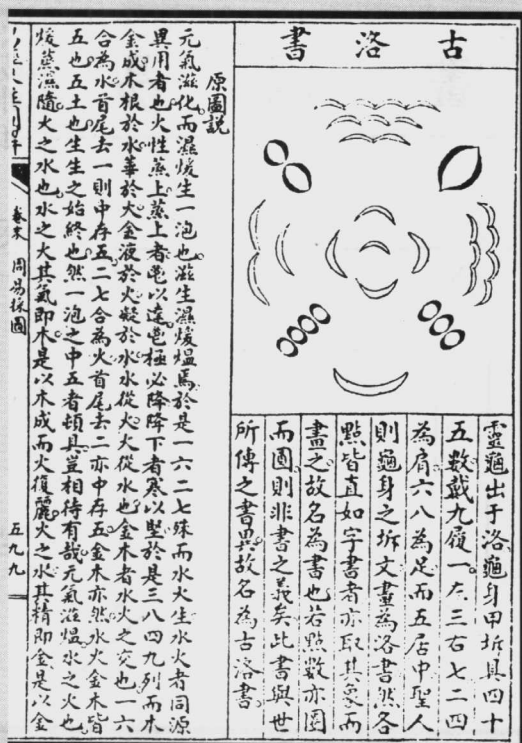 古洛書
靈龜出于洛龜身甲坼具四十
五數戴九履一左三右七二四
為肩六八為足而五居中聖人
則龜身之坼文畫為洛書然各
點皆直如字書者亦取其象而
畫之故名為書也若點數亦圓
而圖則非書之義矣此書與世
所傳之書異故名為古洛書
原圖說
元氣滋化而濕煖生一泡也滋生濕煖熅焉於是一六二七殊而水火生水火者同源
異用者也火性蒸上蒸上者電以遠電極必降降下者寒以堅於是三八四九列而木
金成木根於水華於火金液於火凝於水水從火火從水也金木者水火之交也一六
合為水首尾去一則中存五二七合為火首尾去二亦中存五金木亦然水火金木皆
五也五土也生生之始終也然一泡之中五者頓具豈相待有哉元氣滋熅水之火也
煖蒸濕隨火之水也水之火其氣即木是以木成而火復麗火之水其精即金是以金
卷末 周易採圖
五九九